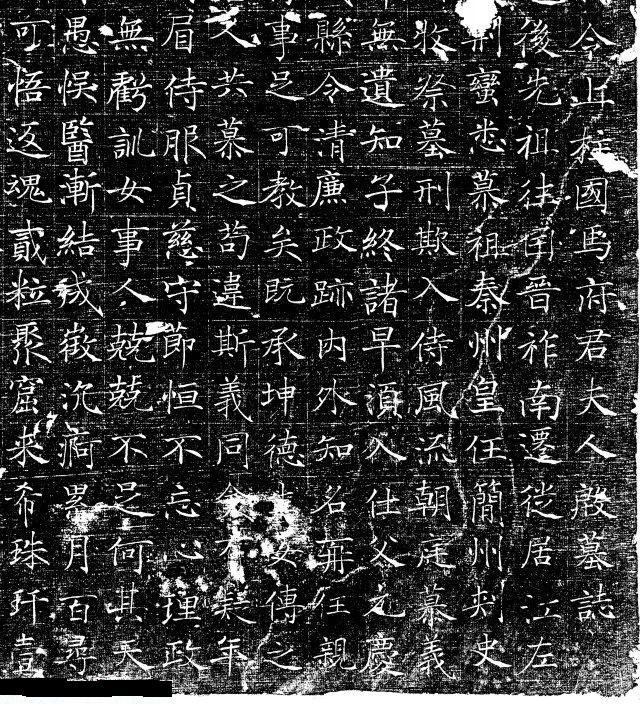 令上柱國馬府君夫人殷墓誌
後先祖往因晉祚南遷從居江左
荆蠻悉慕祖秦州皇任簡州刾史
牧祭墓刑欺入侍風流朝庭慕義
無遺知子終諸早湏入仕父元慶
縣令清廉政跡內外知名再任親
事足可教矣既承坤德 女傳之
文共慕之苟違斯義同 年
眉侍服貞慈守節恒不忘心理政
無虧訓女事人兢兢不足何其天
愚悮醫漸結成徵沉痾累月百尋
可悟返魂貳粒聚窟来希珠玕